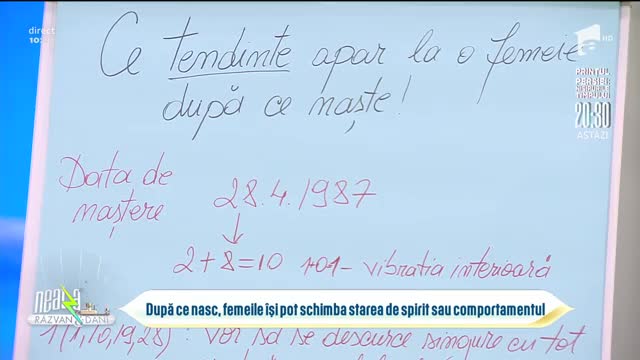 direct
HD
Ce tendinte apar la o femeie
după ce naște!
PRINȚUL
PERSIEI:
NISIPURILE
TIMPULUI
20:30
ASTĂZI
Data de
naștere
28.4.1987
2+8=10
vibratia interioară
neatza
RĂZVAN DANI
După ce nasc, femeile își pot schimba starea de spirit sau comportamentul
1(1,10,19,28): Vor să se descurce singure cu tot